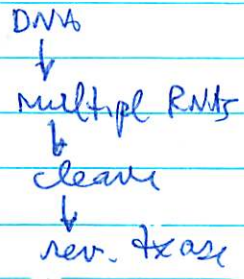 DNA
multipl RNAs
cleave
rev. txase